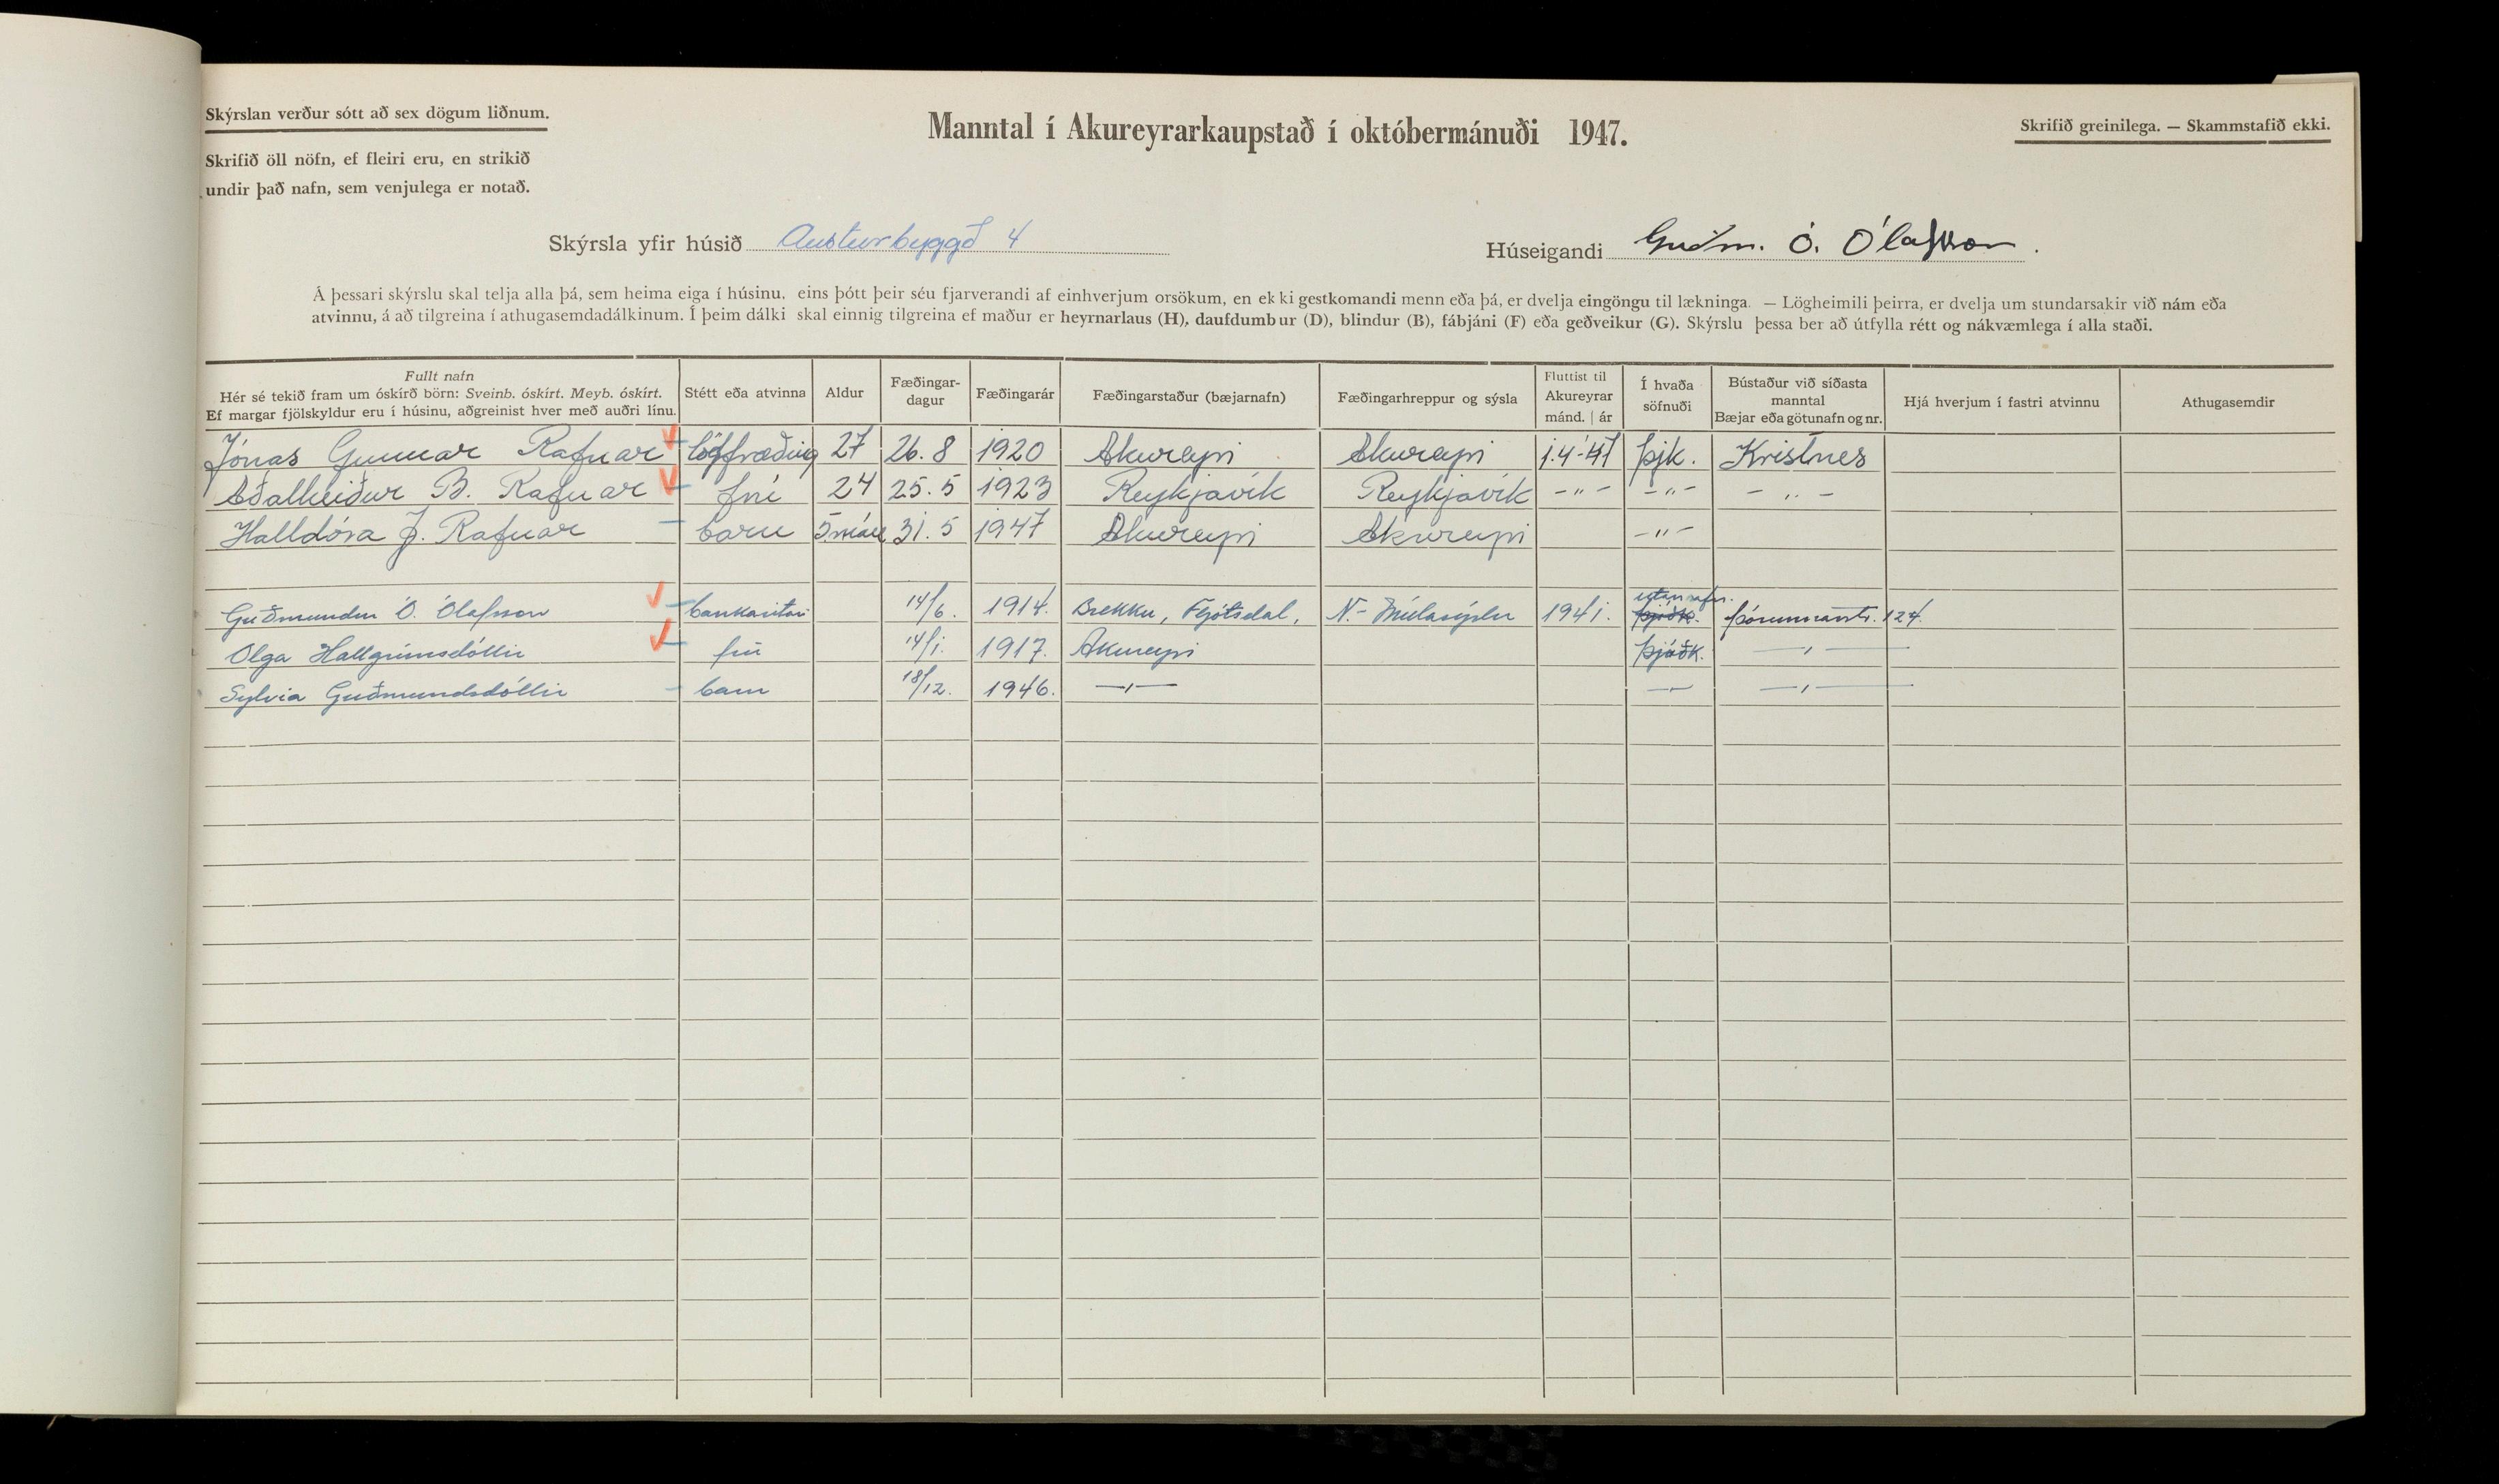 Skýrslan verður sótt að sex dögum liðnum.
Skrifið öll nöfn, ef fleiri eru, en strikið
undir það nafn, sem venjulega er notað.
Manntal í Akureyrarkaupstað í októbermánuði 1947.
Skrifið greinilega. — Skammstafið ekki.
Skýrsla yfir húsið Austurbyggð 4
Húseigandi Guðm. Ó. Ólafsson.
Á þessari skýrslu skal telja alla þá, sem heima eiga í húsinu, eins þótt þeir séu fjarverandi af einhverjum orsökum, en ekki gestkomandi menn eða þá, er dvelja eingöngu til lækninga. — Lögheimili þeirra, er dvelja um stundarsakir við nám eða
atvinnu, á að tilgreina í athugasemdadálkinum. Í þeim dálki skal einnig tilgreina ef maður er heyrnarlaus (H), daufdumbur (D), blindur (B), fábjáni (F) eða geðveikur (G). Skýrslu þessa ber að útfylla rétt og nákvæmlega í alla staði.
Fullt nafn
Hér sé tekið fram um óskírð börn: Sveinb. óskírt. Meyb. óskírt.
Ef margar fjölskyldur eru í húsinu, aðgreinist hver með auðri línu.
Stétt eða atvinna
Aldur
Fæðingar-
dagur
Fæðingarár
Fæðingarstaður (bæjarnafn)
Fæðingarhreppur og sýsla
Fluttist til
Akureyrar
mánd. | ár
Í hvaða
söfnuði
Bústaður við síðasta
manntal
Bæjar eða götunafn og nr.
Hjá hverjum í fastri atvinnu
Athugasemdir
Jónas Gunnar Rafnar lögfræðing 27 26.8 1920 Akureyri Akureyri 1.4-47 Þjk. Kristnes
Aðalheiður B. Rafnar frú 24 25.5 1923 Reykjavík Reykjavík -"- -"- -"-
Halldóra J. Rafnar barn 5 mán 31.5 1947 Akureyri Akureyri -"-
utan safn.
Guðmundur Ó. Ólafsson bankaritari 14/6. 1914. Brekku, Fljótsdal, N.-Múlasýslu 1941. Þjóðk. Þórunnarstr. 124.
Olga Hallgrímsdóttir frú 14/1. 1917. Akureyri Þjóðk. —,—
Sylvia Guðmundsdóttir barn 18/12. 1946. —,— —,— —,—